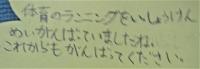 体育のランニングをいっしょうけん
めいがんばっていましたね。
これからもがんばってください。